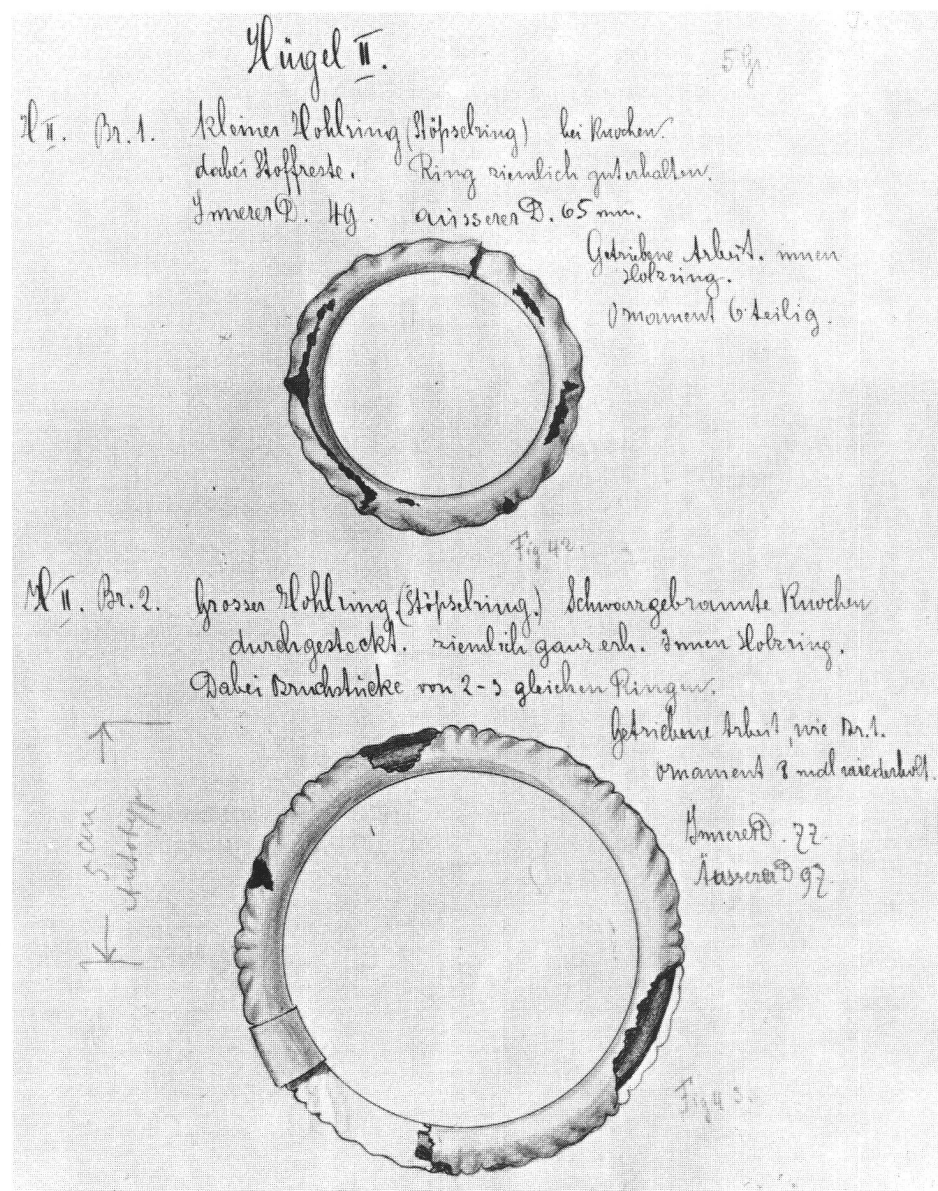 Hügel II.
5 Gr.
H II. Br. 1. kleiner Hohlring (Stöpselring) bei Knochen.
dabei Stoffreste. Ring ziemlich guterhalten.
Innerer D. 49. äusserer D. 65 mm.
Getriebene Arbeit. innen
Holzring.
Ornament 6 teilig.
Fig 42.
H II. Br. 2. Grosser Hohlring (Stöpselring.) Schwarzgebrannte Knochen
durchgesteckt. ziemlich ganz erh. Innen Holzring.
Dabei Bruchstücke von 2-3 gleichen Ringen.
Getriebene Arbeit, wie Br. 1.
Ornament 8 mal wiederholt.
Innerer D. 77.
Äusserer D 97
5 cm
Autotyp
Fig 43.